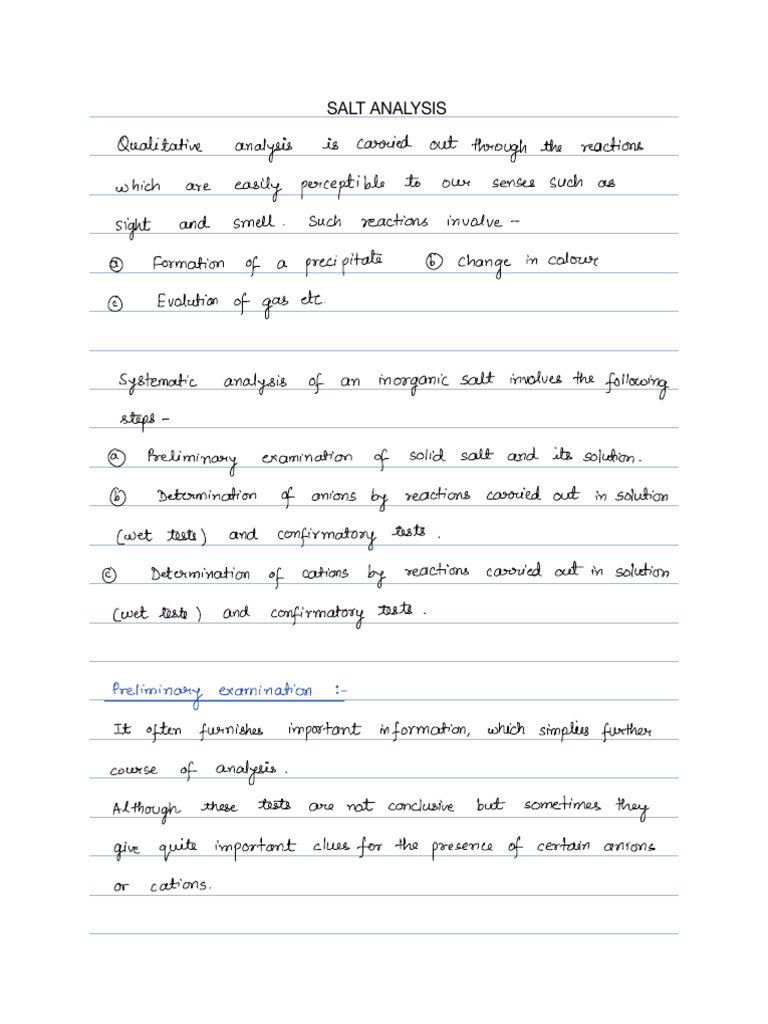 SALT ANALYSIS
Qualitative analysis is carried out through the reactions
which are easily perceptible to our senses such as
sight and smell. Such reactions involve -
ⓐ Formation of a precipitate ⓑ change in colour
ⓒ Evolution of gas etc.
Systematic analysis of an inorganic salt involves the following
steps -
ⓐ Preliminary examination of solid salt and its solution.
ⓑ Determination of anions by reactions carried out in solution
(wet tests) and confirmatory tests.
ⓒ Determination of cations by reactions carried out in solution
(wet tests) and confirmatory tests.
Preliminary examination :-
It often furnishes important information, which simplies further
course of analysis.
Although these tests are not conclusive but sometimes they
give quite important clues for the presence of certain anions
or cations.